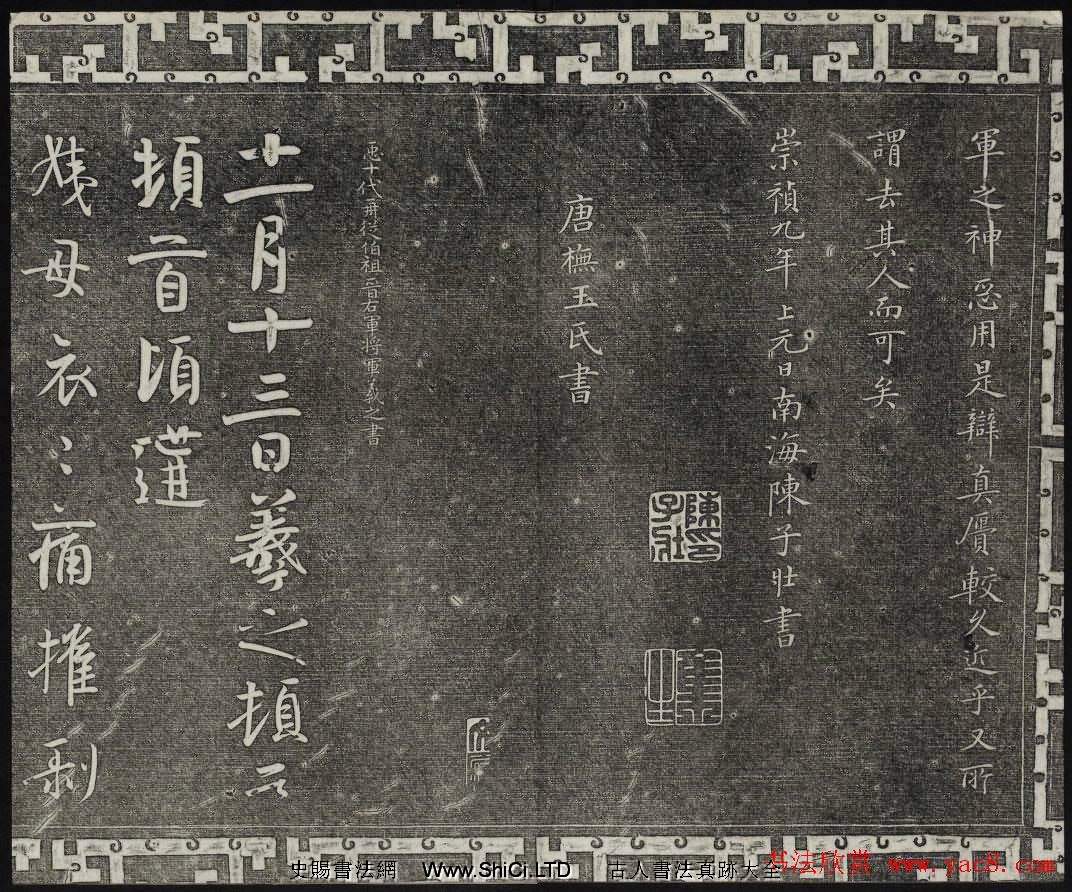 軍之神忽用是辯真贗較久近乎又所
謂去其人而可矣
崇禎九年上元日南海陳子壯書
陳子壯印
唐橅王氏書
臣十代再從伯祖晉右軍將軍羲之書
一月十三日羲之頓首
頓首頃遘
姨母哀哀痛摧剥
史賜書法網 Www.ShiCi.LTD 古人書法真跡大全
书法欣赏 www.yac8.com